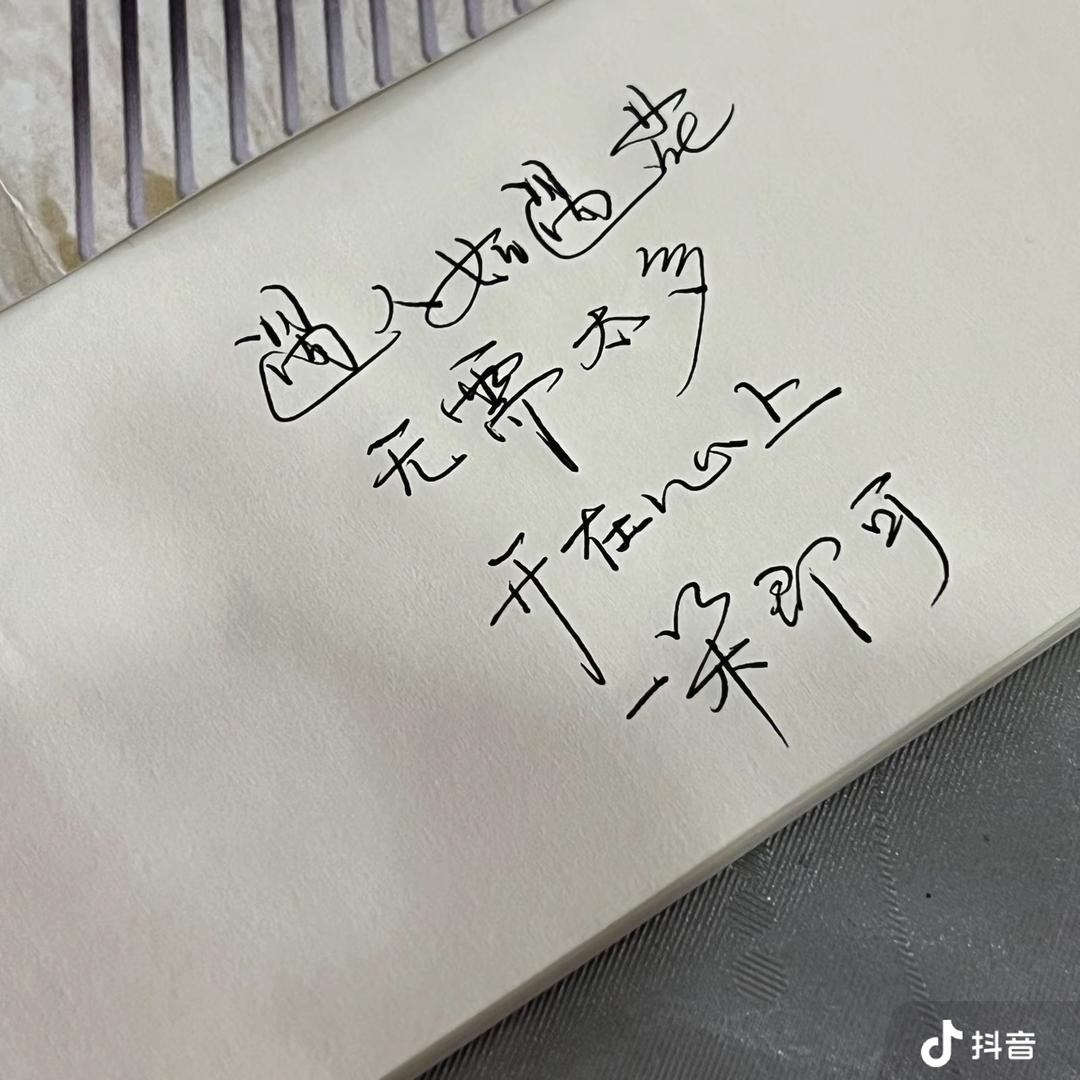 遇人如遇花
无需太多
开在心上
一朵即可
抖音